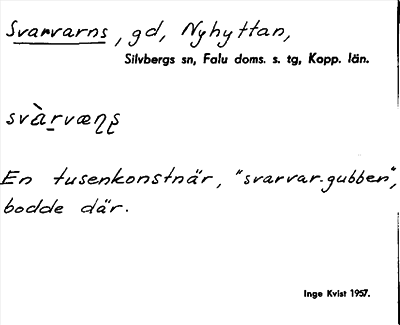 Svarvarns, gd, Nyhyttan,
Silvbergs sn, Falu doms. s. tg, Kopp. län.
svàrvæɳʂ
En tusenkonstnär, "svarvar-gubben",
bodde där.
Inge Kvist 1957.